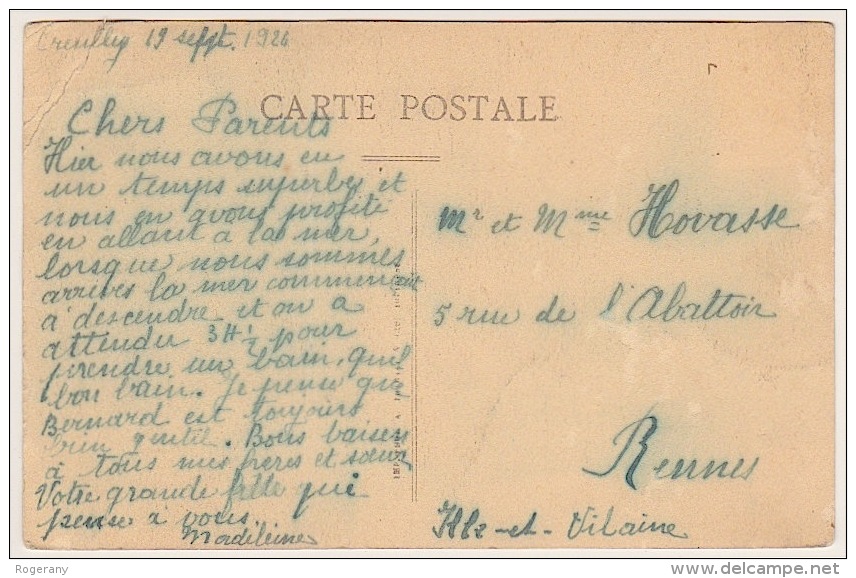 Creully 19 sept. 1926
CARTE POSTALE
Chers Parents
Hier nous avons eu
un temps superbe et
nous en avons profité
en allant à la mer,
lorsque nous sommes
arrivés la mer commençait
à descendre et on a
attendu 3H ½ pour
prendre un bain, quel
bon bain. Je pense que
Bernard est toujours
bien gentil. Bons baisers
à tous mes frères et sœur
Votre grande fille qui
pense à vous.
Madeleine
Mr et Mme Hovasse
5 rue de l'Abattoir
Rennes
Ille-et-Vilaine
Rogerany
www.delcampe.net